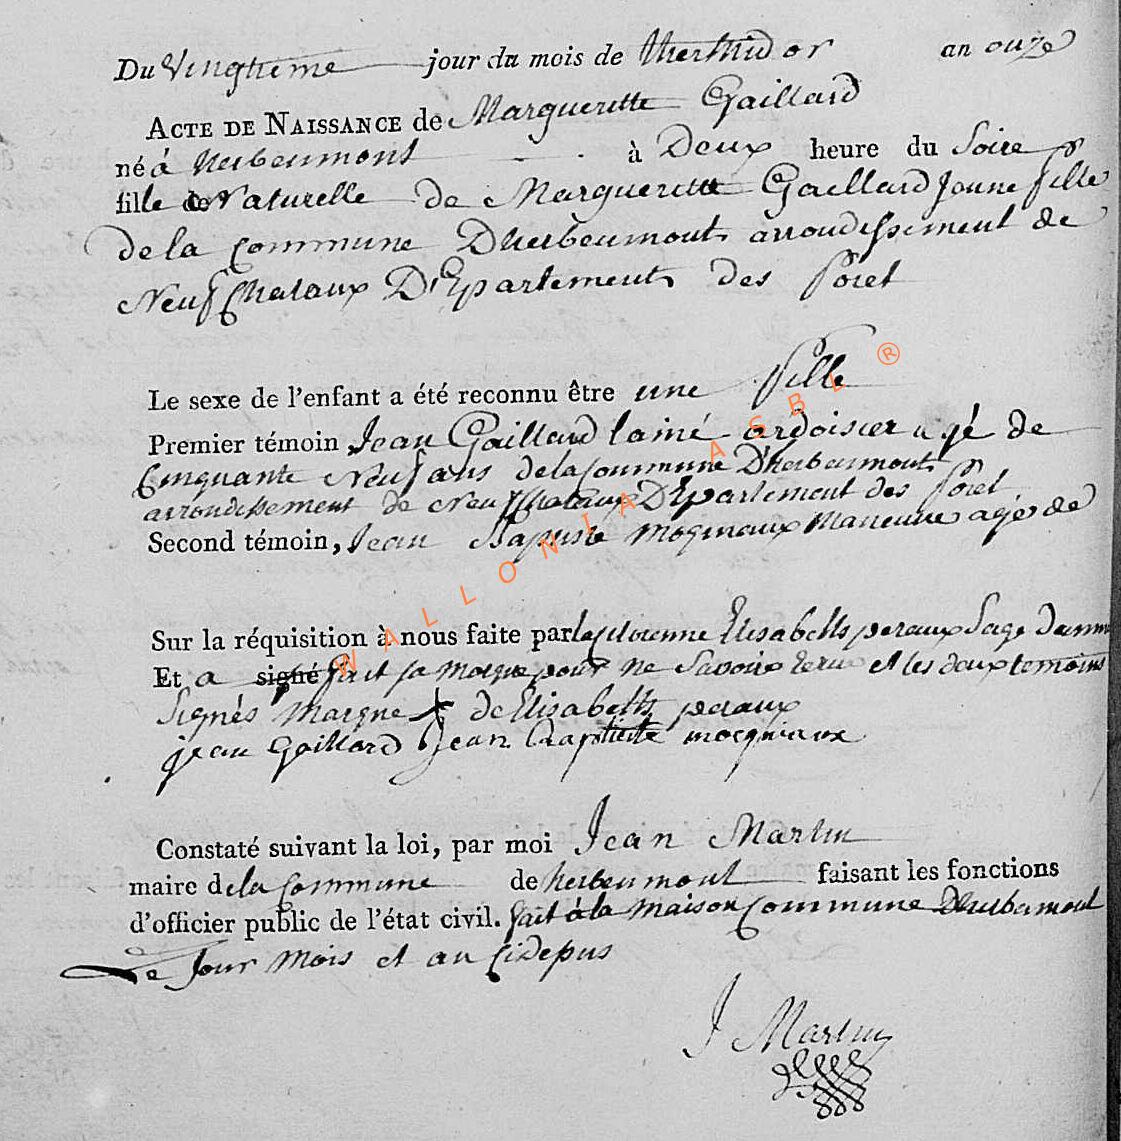 Du Vingtieme jour du mois de thermidor an onze
ACTE DE NAISSANCE de Margueritte Gaillard
né á herbeumont à Deux heure du Soire
fille de Naturelle de Margueritte Gaillard Jeune fille
de la Commune Dherbeumont arrondissement de
Neufchataux D'Epartement des Foret
Le sexe de l'enfant a été reconnu être une fille
Premier témoin Jean Gaillard lainé ardoisier agé de
Cinquante Neuf ans de la Commune D'herbeumont
arrondissement de Neufchataux D'Epartement des Foret
Second témoin, Jean Baptiste moqueaux Maneuvre agé de
Sur la réquisition à nous faite par la Citoienne Elisabeth peraux Sage
Et a signé fait sa marque pour ne Savoir et les deux temoins
Signés marque de Elisabeth peraux
jean Gaillard Jean Baptiste
Constaté suivant la loi, par moi Jean Martin
maire de la Commune de herbeumont faisant les fonctions
d'officier public de l'état civil. fait á la maison Commune Dherbeumont
Le Jour mois et an Cidepus
J Martin
WALLONIA ASBL ®